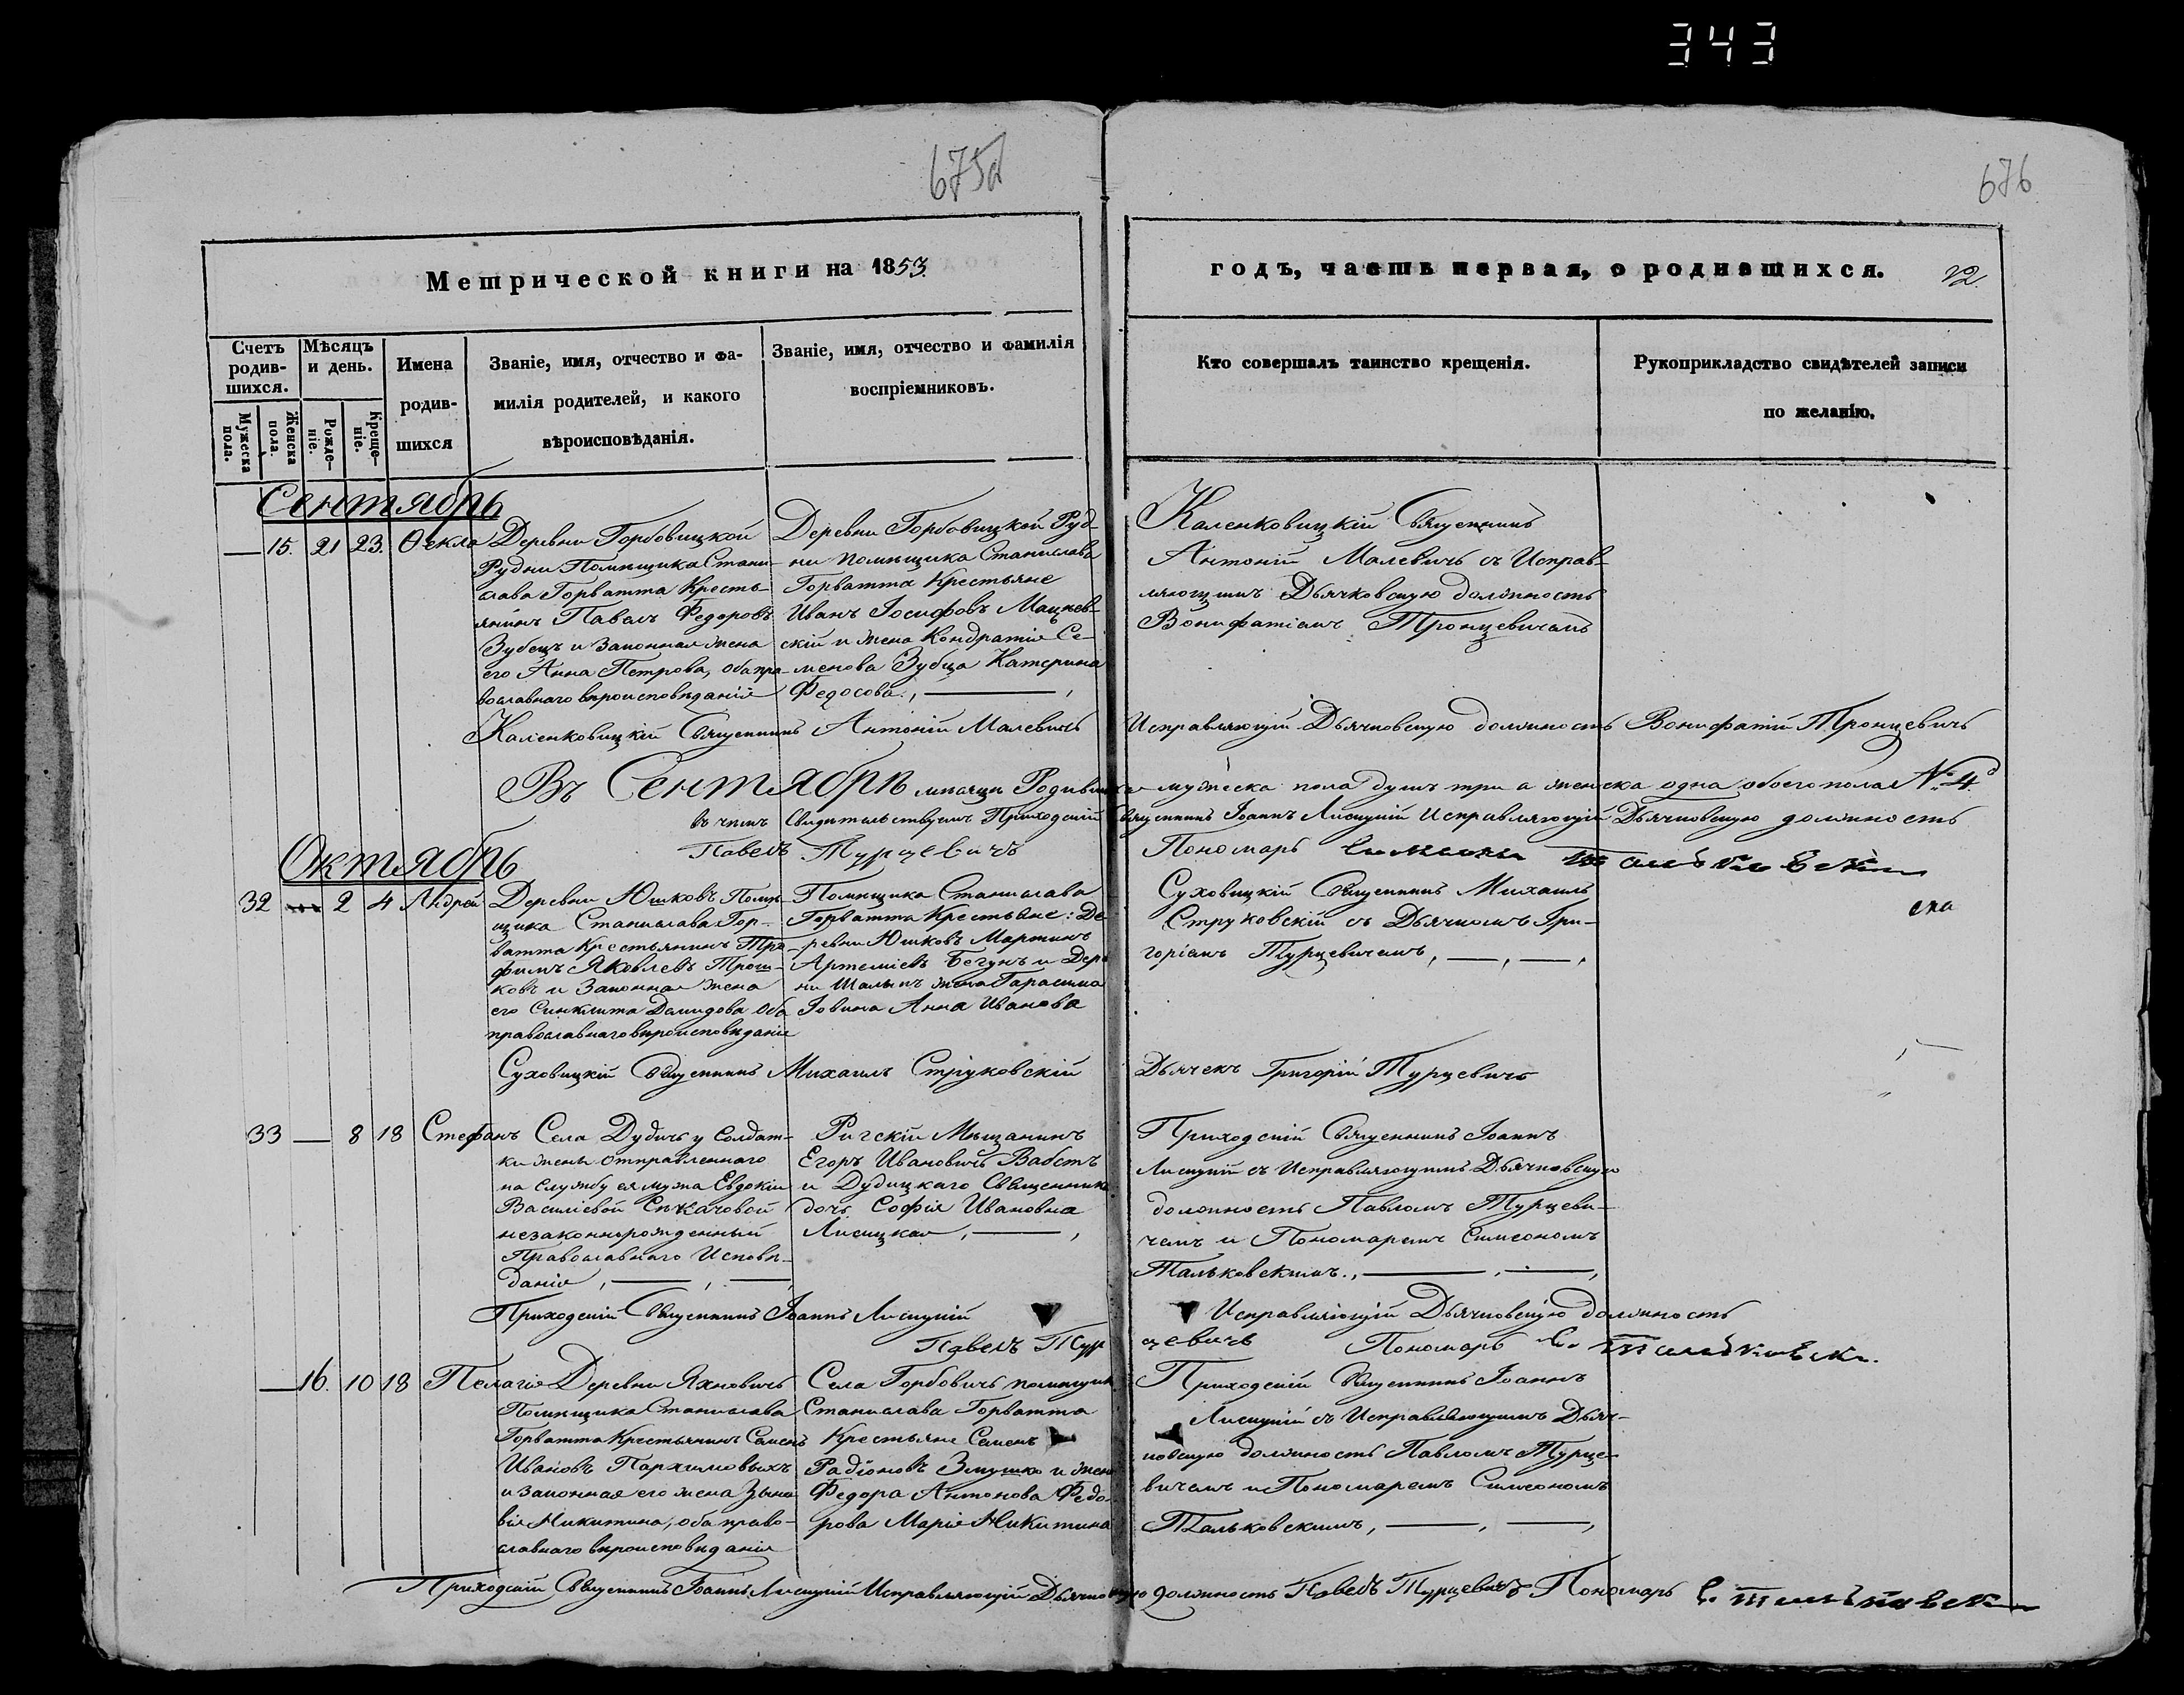 343
675
676
Метрической книги на 1853
годъ, часть первая, о родившихся.
Счетъ родив-
шихся.
Мѣсяцъ
и день.
Мужеска
пола.
Женска
пола.
Рожде-
ніе.
Креще-
ніе.
Имена
родив-
шихся
Званіе, имя, отчество и фа-
милія родителей, и какого
вѣроисповѣданія.
Званіе, имя, отчество и фамилія
воспріемниковъ.
Кто совершалъ таинство крещенія.
Рукоприкладство свидѣтелей записи
по желанію.
Сентябрь
— 15. 21 23. Ѳекла
Деревни Горбовицкой
Рудни Помѣщика Стани-
слава Горватта Кресть-
янинъ Павелъ Федоровъ
Зубецъ и Законная жена
его Анна Петрова, оба пра-
вославнаго вѣроисповѣданія
Деревни Горбовицкой Руд-
ни помѣщика Станислава
Горватта Крестьяне
Иванъ Іосифовъ Мацкев-
скій и жена Кондратія Се-
менова Зубца Катерина
Федосова.,
Каленковицкій Священникъ
Антоній Малевичъ съ Исправ-
ляющимъ Дьячковскую должность
Вонифатіемъ Тронцевичемъ
Каленковицкій Священникъ Антоній Малевичъ Исправляющій Дьячковскую должность Вонифатій Тронцевичъ
Въ Сентябрѣ мѣсяцѣ Родившихся мужеска пола душъ три а женска одна обоего пола № 4
въ чемъ свидѣтельствуемъ Приходскій Священникъ Іоаннъ Лисицкій Исправляющій Дьячковскую должность
Павелъ Турцевичъ Пономарь
Октябрь
32 2 4 Андрей
Деревни Юшковъ Помѣ-
щика Станислава Гор-
ватта Крестьянинъ Тро-
фимъ Яковлевъ Трош-
ковъ и Законная жена
его Синклита Демидова Оба
православнаго вѣроисповѣданія
Помѣщика Станислава
Горватта Крестьяне: Де-
ревни Юшковъ Мартинъ
Артеміевъ Бегунъ и Дерев-
ни жена Гарасима
Іовина Анна Иванова
Суховицкій Священникъ Михаилъ
Струковскій съ Дьячкомъ Гри-
горіемъ Турцевичемъ,
Суховицкій Священникъ Михаилъ Струковскій Дьячекъ Григорій Турцевичъ
33 — 8 18 Стефанъ
Села Дудичъ у Солдат-
ки жены отправленнаго
на службу ея мужа Евдокіи
Василіевой Сѣкачовой
незаконнорожденный
Православнаго Исповѣ-
данія,
Ригскій Мѣщанинъ
Егоръ Ивановичъ Вабстъ
и Дудицкаго Священника
дочь Софія Ивановна
Лисицкая,
Приходскій Священникъ Іоаннъ
Лисицкій съ Исправляющимъ Дьячковскую
должность Павломъ Турцеви-
чемъ и Пономаремъ Симеономъ
Тальковскимъ.,
Приходскій Священникъ Іоаннъ Лисицкій Исправляющій Дьячковскую должность
Павелъ Турцевичъ Пономарь С. Тальковскій
— 16. 10 18 Пелагія
Деревни Яхновичъ
Помѣщика Станислава
Горватта Крестьянинъ Семенъ
Ивановъ Пархимовыхъ
и законная его жена Зено-
вія Никитина, оба право-
славнаго вѣроисповѣданія
Села Горбовичъ помѣщика
Станислава Горватта
Крестьяне Семенъ
Радіоновъ Змушко и жена
Федора Антонова Федо-
рова Марія Никитина
Приходскій Священникъ Іоаннъ
Лисицкій съ Исправляющимъ Дьяч-
ковскую должность Павломъ Турце-
вичемъ и Пономаремъ Симеономъ
Тальковскимъ,
Приходскій Священникъ Іоаннъ Лисицкій Исправляющій Дьячковскую должность Павелъ Турцевичъ Пономарь С. Тальковскій